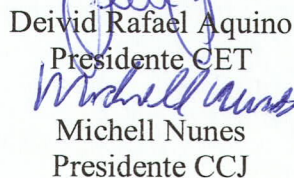 Deivid Rafael Aquino
Presidente CET
Michell Nunes
Michell Nunes
Presidente CCJ